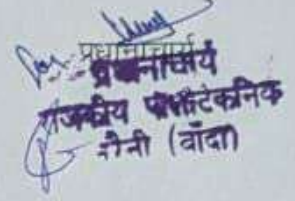 प्रधानाचार्य
प्रधानाचार्य
राजकीय पॉलीटेकनिक
(बाँदा)